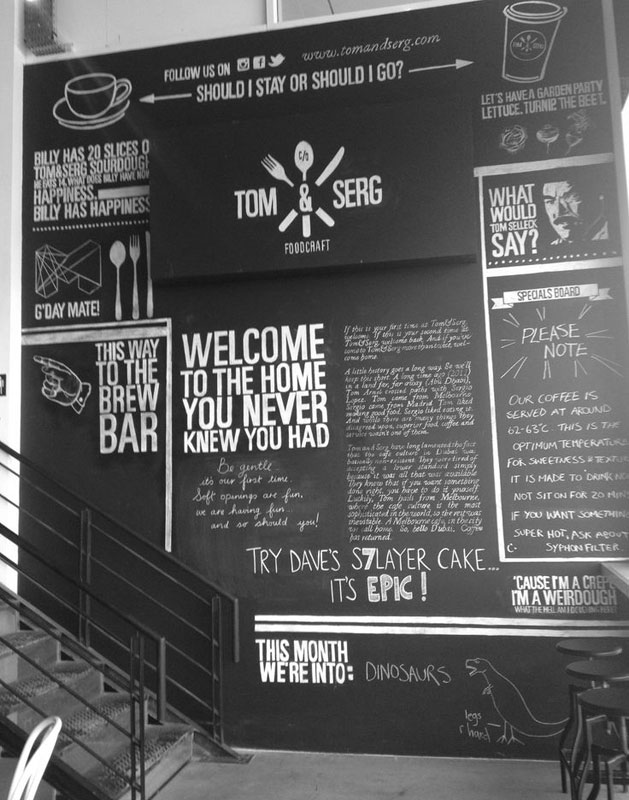 FOLLOW US ON
www.tomandserg.com
SHOULD I STAY OR SHOULD I GO?
TOM & SERG
LET'S HAVE A GARDEN PARTY
LETTUCE. TURNIP. THE BEET.
BILLY HAS 20 SLICES O
TOM&SERG SOURDOUGH
HE EATS 14. WHAT DOES BILLY HAVE NOW
HAPPINESS.
BILLY HAS HAPPINESS
C/S
TOM & SERG
FOODCRAFT
WHAT
WOULD
TOM SELLECK
SAY?
G'DAY MATE!
SPECIALS BOARD
PLEASE
NOTE
OUR COFFEE IS
SERVED AT AROUND
62-63°C. THIS IS THE
OPTIMUM TEMPERATURE
FOR SWEETNESS & TEXTUR
IT IS MADE TO DRINK NO
NOT SIT ON FOR 20 MINS
IF YOU WANT SOMETHING
SUPER HOT, ASK ABOUT
SYPHON FILTER
THIS WAY
TO THE
BREW
BAR
WELCOME
TO THE HOME
YOU NEVER
KNEW YOU HAD
Be gentle
it's our first time.
Soft openings are fun,
we are having fun...
and so should you!
If this is your first time at Tom&Serg,
welcome. If this is your second time at
Tom&Serg welcome back. And if you've
been to Tom&Serg more than twice, wel-
come home.
A little history goes a long way. So we'll
keep this short. A long time ago (2011)
in a land far, far away (Abu Dhabi),
Tom Arnel crossed paths with Sergio
Lopez. Tom came from Melbourne.
Sergio came from Madrid. Tom liked
making good food. Sergio liked eating it.
And while there are many things they
disagreed upon, superior food, coffee and
service wasn't one of them.
Tom and Serg have long lamented the fact
that the cafe culture in Dubai was
basically non-existent. They were tired of
accepting a lower standard simply
because it was all that was available.
They knew that if you want something
done right, you have to do it yourself.
Luckily, Tom hails from Melbourne,
where the cafe culture is the most
sophisticated in the world, so the rest was
inevitable. A Melbourne cafe, in the city
we all home. So, hello Dubai. Coffee
has returned.
TRY DAVE'S S7LAYER CAKE...
IT'S EPIC!
'CAUSE I'M A CREPE
I'M A WEIRDOUGH
WHAT THE HELL AM I DOUGHING HERE?
THIS MONTH
WE'RE INTO: DINOSAURS
legs
r hard